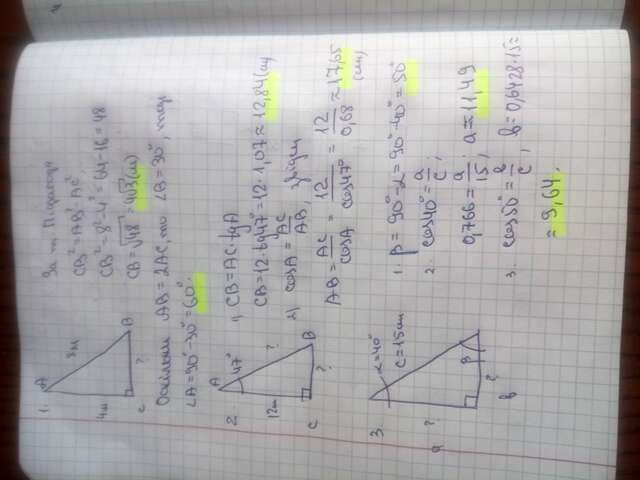 1.
A
8м
4м
C
B
?
За т. Піфагора
CB²=AB²-AC²
CB²=8²-4²=64-16=48
CB=√48=4√3(м)
Оскільки AB=2AC, то ∠B=30°, тоді
∠A=90°-30°=60°
2
A
47°
12см
?
?
C
B
1) CB=AC·tgA
CB=12·tg47°=12·1,07≈12,84(см)
2) cosA=AC/AB, звідси
AB=AC/cosA=12/cos47°=12/0,68≈17,65
(см)
3
α=40°
C=15см
a
?
β
?
b
1. β=90°-α=90°-40°=50°
2. cos40°=a/c;
0,766=a/15; a≈11,49
3. cos50°=b/c; b=0,6428·15≈
≈9,64.